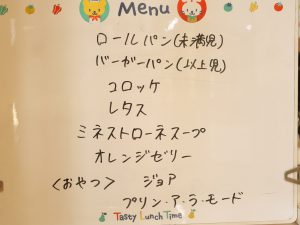 Menu
ロールパン(未満児)
バーガーパン(以上児)
コロッケ
レタス
ミネストローネスープ
オレンジゼリー
<おやつ> ジョア
プリン・ア・ラ・モード
Tasty Lunch Time